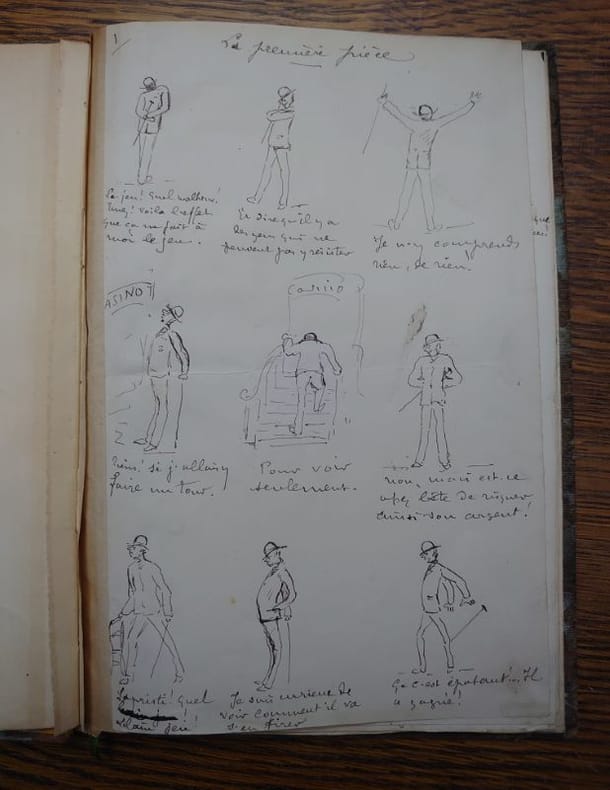 1
La première pièce
Le jeu! Quel malheur!
Tenez! Voilà l'effet
que ça me fait à
moi le jeu.
Et dire qu'il y a
des gens qui ne
peuvent pas y résister
Je n'y comprends
rien, de rien!
ASINO
Tiens! si j'allais y
faire un tour.
Casino
Pour voir
seulement.
non, mais est-ce
assez bête de risquer
ainsi son argent!
Sapristi! Quel
vilain jeu!
Je suis curieux de
voir comment il va
s'en tirer
Ça c'est épatant!... Il
a gagné!